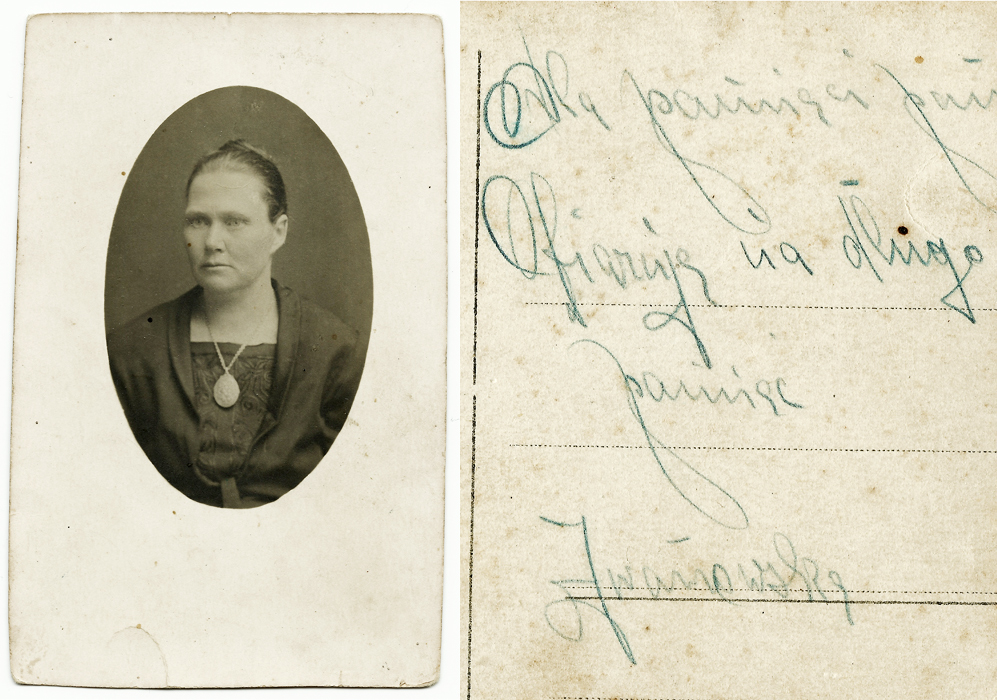 Dla pamięci
Ofiaruję na długo
pamięc
Jwanowska